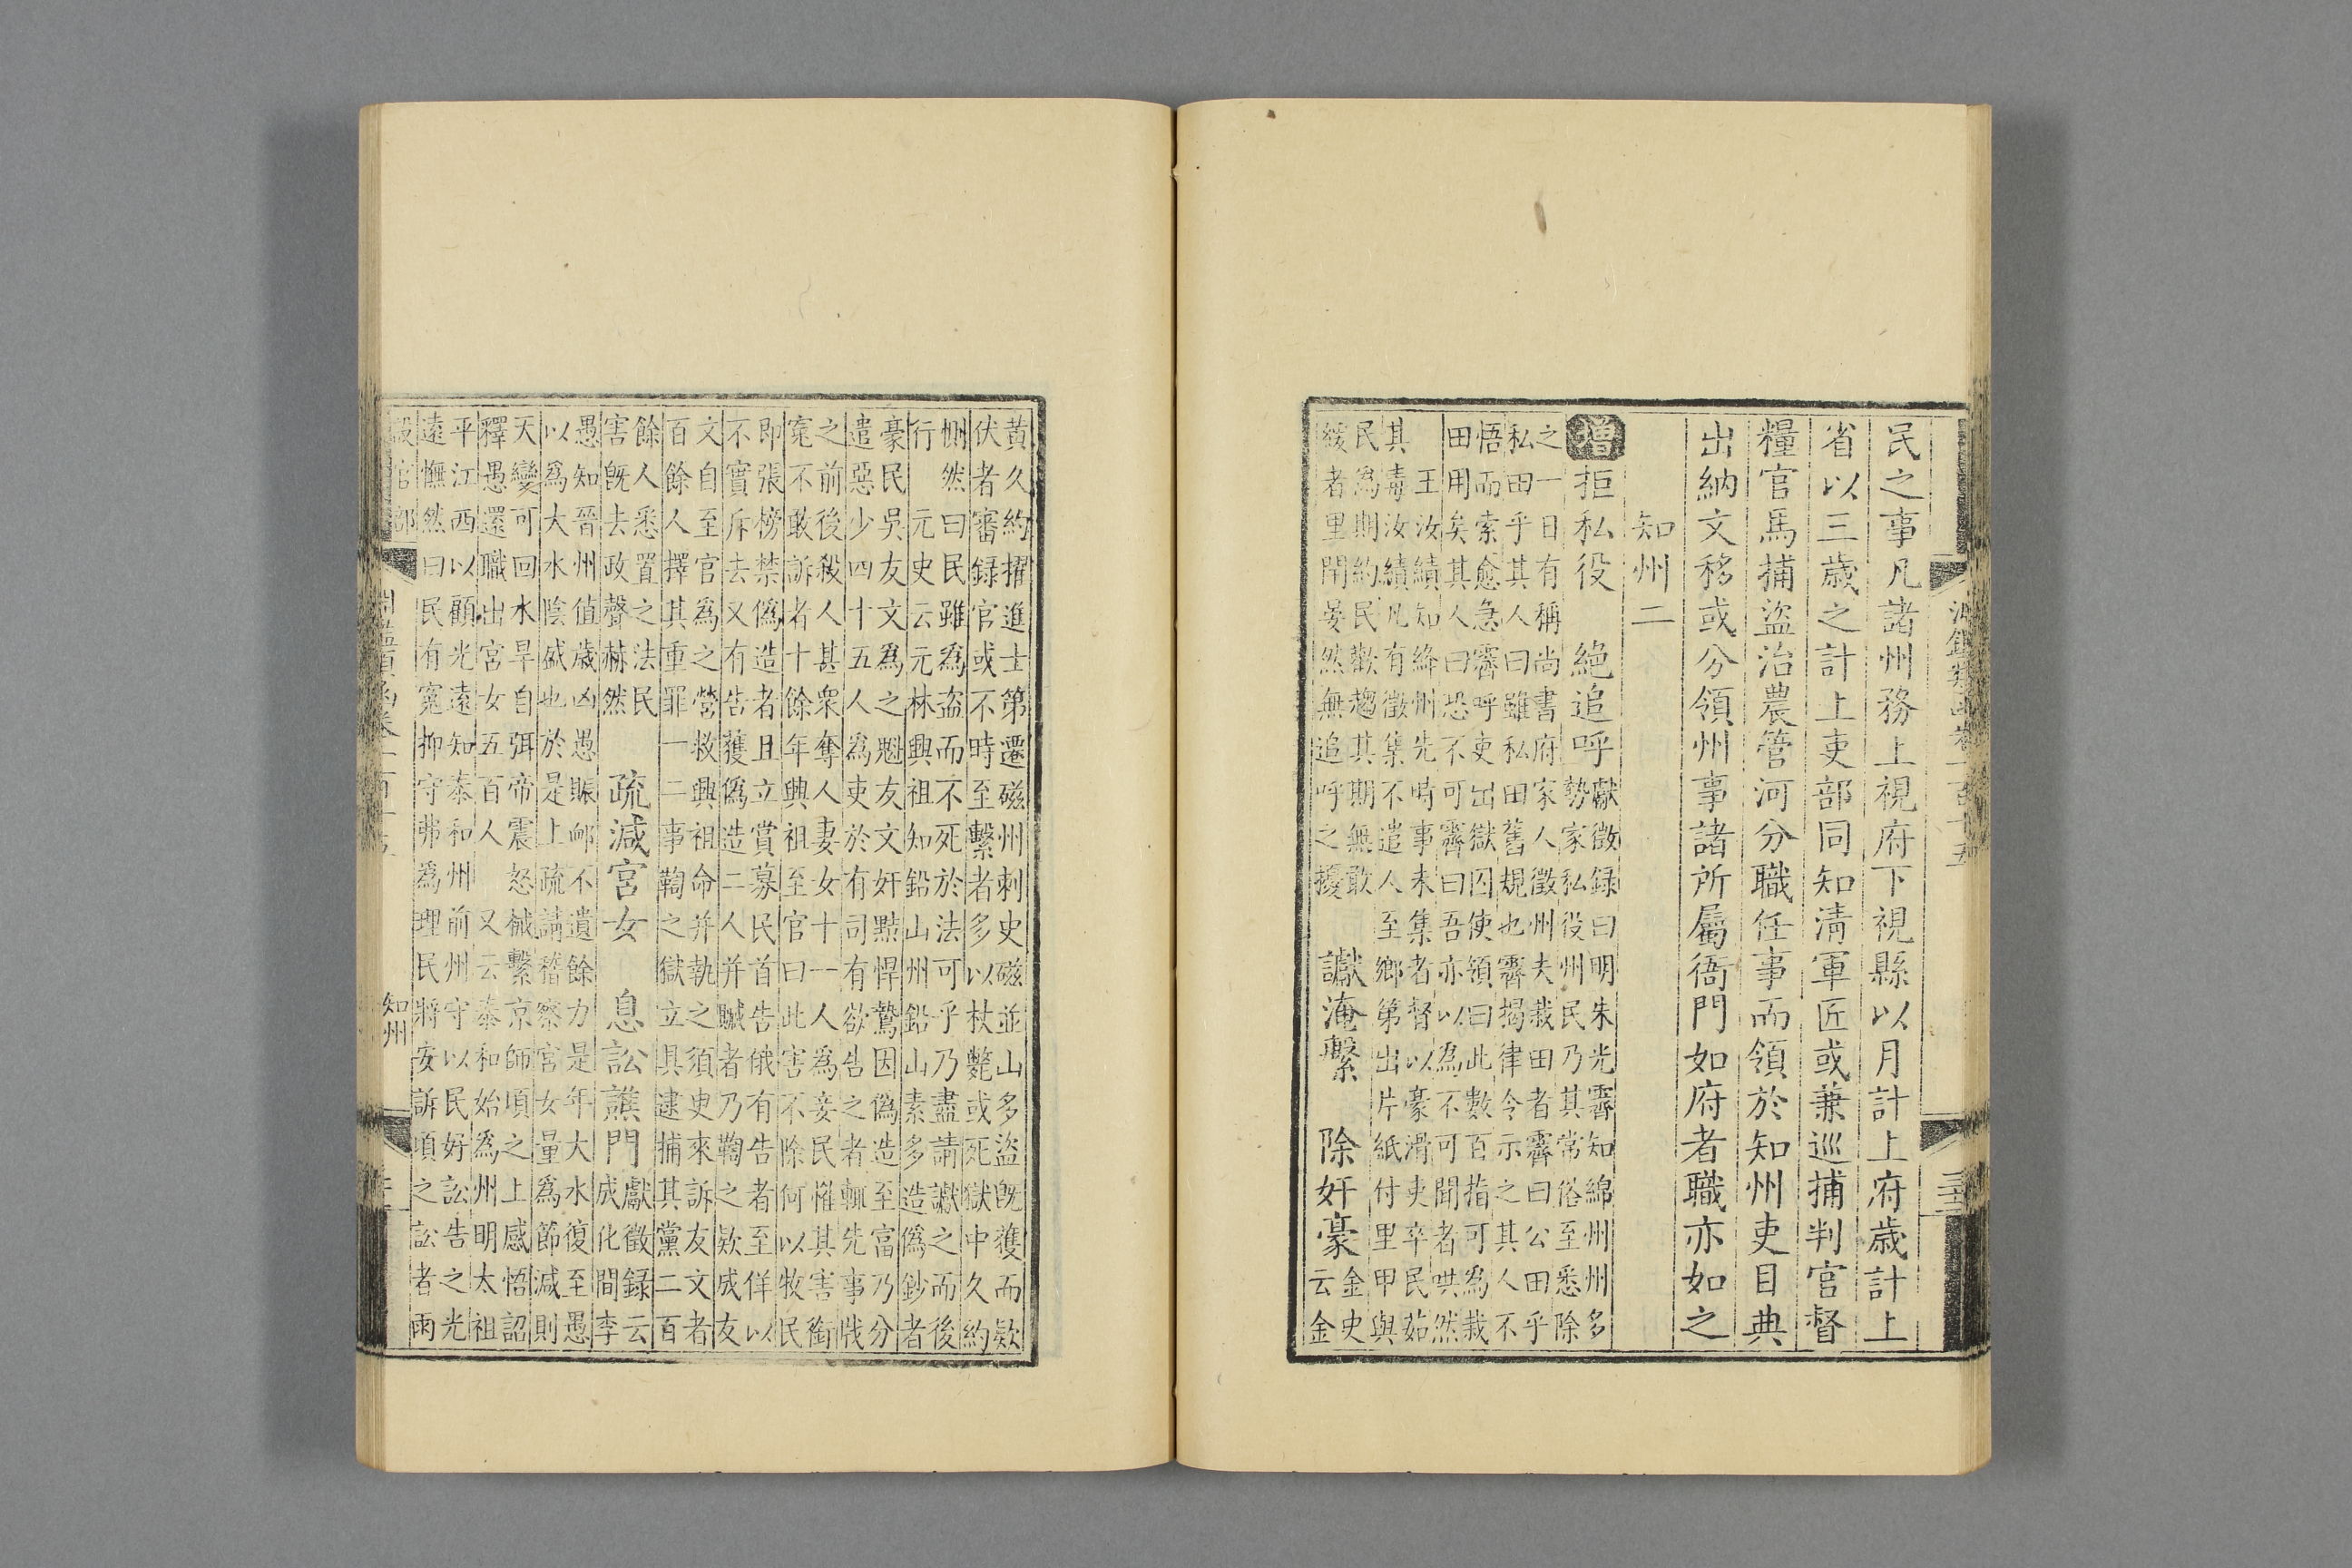 民之事凡諸州務上視府下視縣以月計上府歲計上
省以三歲之計上吏部同知清軍匠或兼巡捕判官督
糧官馬捕盜治農管河分職任事而領於知州吏目典
出納文移或分領州事諸所屬衙門如府者職亦如之
知州二
增拒私役
絕追呼
獻徵錄曰明朱光霽知綿州州多
勢家私役州民乃其常俗至悉除
之一日有稱尚書府家人徵州夫栽田者霽曰公田乎
私田乎其人曰雖私田舊規也霽揭律令示之其人不
悟而索愈急霽呼吏出獄囚使領曰此數百指可爲栽
田用矣其人曰恐不可霽曰吾亦以爲不可聞者哄然
王汝績知絳州先時事未集者督以豪滑吏卒民茹
其毒汝績凡有徵集不遣人至鄉第出片紙付里甲與
民爲期約民歡趨其期無敢
緩者里閈晏然無追呼之擾
讞淹繫
除奸豪
金史
云金
黃久約擢進士第遷磁州刺史磁並山多盜旣獲而款
伏者審録官或不時至繫者多以杖斃或死獄中久約
惻然曰民雖爲盗而不死於法可乎乃盡請讞之而後
行 元史云元林興祖知鉛山州鉛山素多造僞鈔者
豪民吳友文爲之魁友文奸黠悍鷙因僞造至富乃分
遣惡少四十五人爲吏於有司有欲告之者輒先事戕
之前後殺人甚衆奪人妻女十一人爲妾民罹其害銜
寃不敢訴者十餘年興祖至官曰此害不除何以牧民
即張榜禁僞造者且立賞募民首告俄有告者至佯以
不實斥去又有告獲僞造二人并贜者乃鞫之款成友
文自至官爲之營救興祖命并執之須臾來訴友文者
百餘人擇其重罪一二事鞫之獄立具逮捕其黨二百
餘人悉置之法民
害旣去政聲赫然
疏減宮女
息訟譙門
獻徵録云
成化間李
愚知晉州值歲凶愚賑邮不遺餘力是年大水復至愚
以爲大水陰盛也於是上疏請稽察宮女量爲節減則
天變可回水旱自弭帝震怒械繫京師頃之上感悟詔
釋愚還職出宮女五百人 又云泰和始爲州明太祖
平江西以顧光遠知泰和州前州守以民好訟告之光
遠憮然曰民有寃抑守弗爲理民將安訴頃之訟者兩
知州